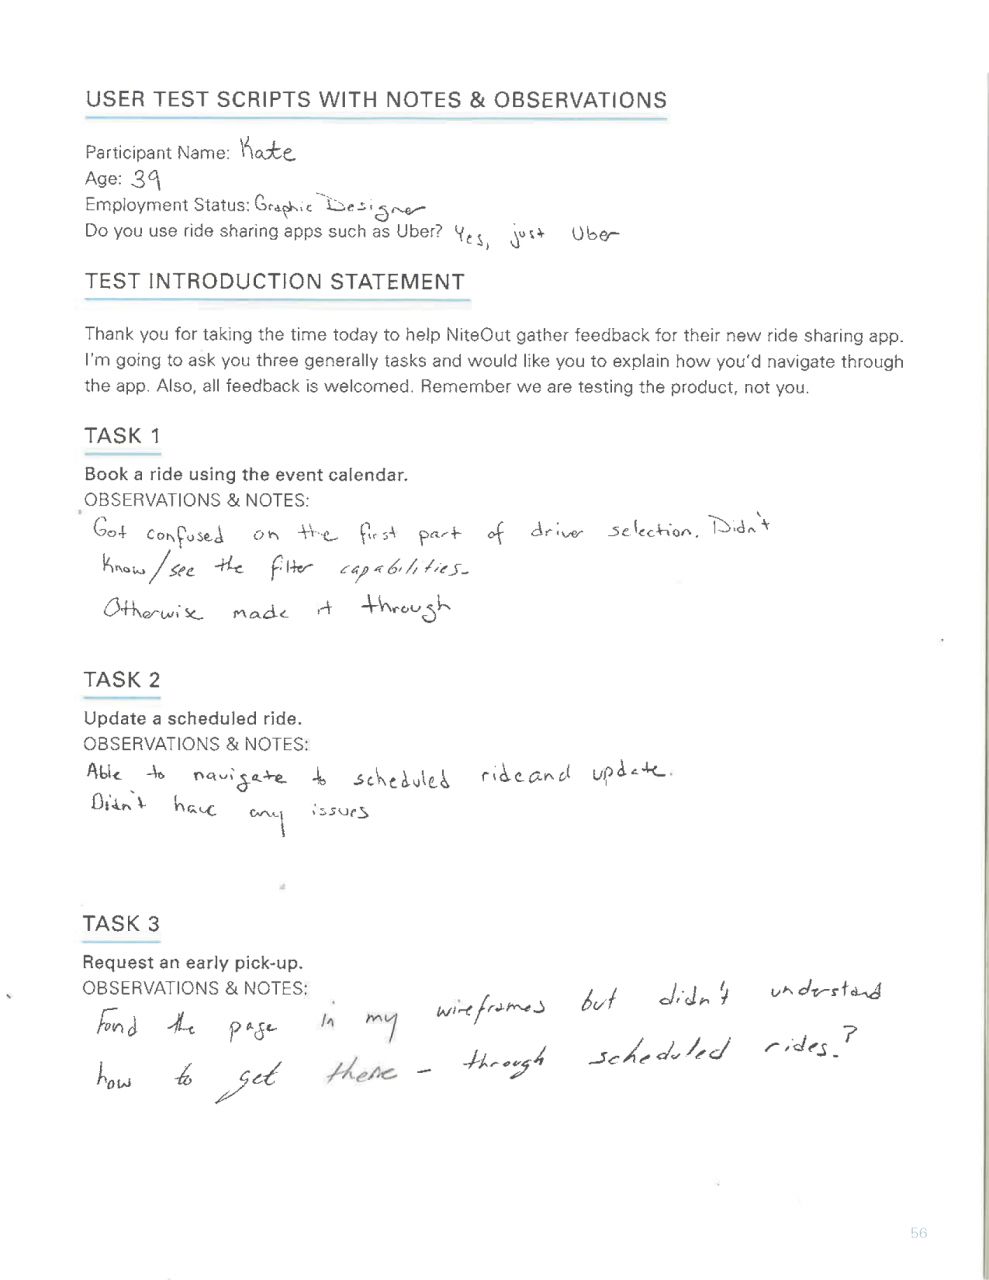 USER TEST SCRIPTS WITH NOTES & OBSERVATIONS
Participant Name: Kate
Age: 39
Employment Status: Graphic Designer
Do you use ride sharing apps such as Uber? Yes, just Uber
TEST INTRODUCTION STATEMENT
Thank you for taking the time today to help NiteOut gather feedback for their new ride sharing app.
I'm going to ask you three generally tasks and would like you to explain how you'd navigate through
the app. Also, all feedback is welcomed. Remember we are testing the product, not you.
TASK 1
Book a ride using the event calendar.
OBSERVATIONS & NOTES:
Got confused on the first part of driver selection. Didn't
know/see the filter capabilities.
Otherwise made it through
TASK 2
Update a scheduled ride.
OBSERVATIONS & NOTES:
Able to navigate to scheduled ride and update.
Didn't have any issues
TASK 3
Request an early pick-up.
OBSERVATIONS & NOTES:
Fond the page in my wireframes but didn't understand
how to get there - through scheduled rides.?
56